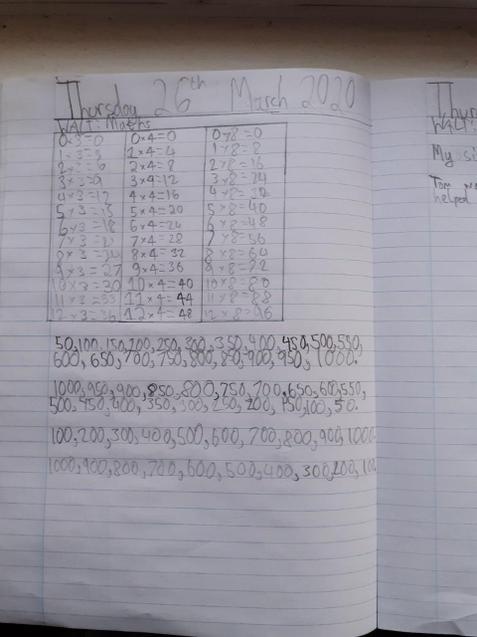 Thursday 26th March 2020
WALT: Maths
0×3=0 0×4=0 0×8=0
1×3=3 1×4=4 1×8=8
2×3=6 2×4=8 2×8=16
3×3=9 3×4=12 3×8=24
4×3=12 4×4=16 4×8=32
5×3=15 5×4=20 5×8=40
6×3=18 6×4=24 6×8=48
7×3=21 7×4=28 7×8=56
8×3=24 8×4=32 8×8=64
9×3=27 9×4=36 9×8=72
10×3=30 10×4=40 10×8=80
11×3=33 11×4=44 11×8=88
12×3=36 12×4=48 12×8=96
50,100,150,200,250,300,350,400,450,500,550,
600,650,700,750,800,850,900,950,1000.
1000,950,900,850,800,750,700,650,600,550,
500,450,400,350,300,250,200,150,100,50.
100,200,300,400,500,600,700,800,900,1000
1000,900,800,700,600,500,400,300,200,100
Thur
WALT:
My si
Tom
helped